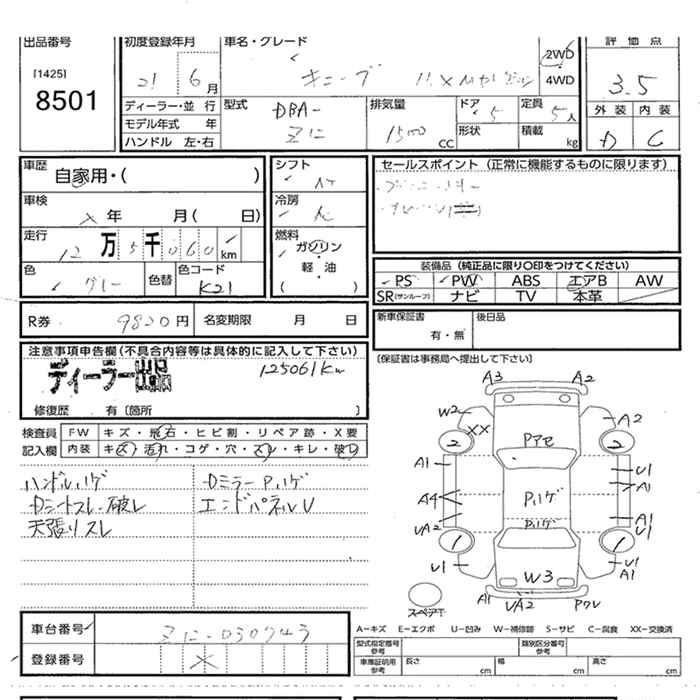 出品番号
[1425]
8501
初度登録年月
21 6月
車名・グレード
キューブ
2WD
4WD
評価点
3.5
外装 内装
D C
ディーラー・並行
モデル年式 年
ハンドル 左・右
型式
DBA-
Z12
排気量
1500 CC
ドア 5
形状
定員 5人
積載 kg
車歴
自家用・( )
車検
X年 月( 日)
走行
12万5千060km
色
グレー
色替
色コード
K21
シフト
AT
冷房
AC
燃料
ガソリン
軽・油
( )
セールスポイント(正常に機能するものに限ります)
装備品(純正品に限り〇印をつけてください)
PS PW ABS エアB AW
SR(サンルーフ) ナビ TV 本革
R券 9820円 名変期限 月 日
新車保証書
有・無
後日品
[保証書は事務局へ提出して下さい]
注意事項申告欄(不具合内容等は具体的に記入して下さい)
ディーラー出品
125061Km
修復歴 有[箇所 ]
検査員
記入欄
FW キズ・飛石・ヒビ割・リペア跡・X要
内装 キズ・汚れ・コゲ・穴・スレ・キレ・破レ
ハンドルハゲ
Dシートスレ・破レ
天張りスレ
DミラーPハゲ
エンドパネルU
A3 A2
W2 XX A2
2 Pアセ 2
A1 U1
A1
A4 Pハゲ
UA2 Pハゲ A1
U1
1 1
U1 W3 U1
A1
スペアT A1 UA2 PクU
A−キズ E−エクボ U−凹み W−補修跡 S−サビ C−腐食 XX−交換済
型式指定番号
参考
類別区分番号
参考
車庫証明用
参考
長さ cm 幅 cm 高さ cm
車台番号 Z12-030743
登録番号 X